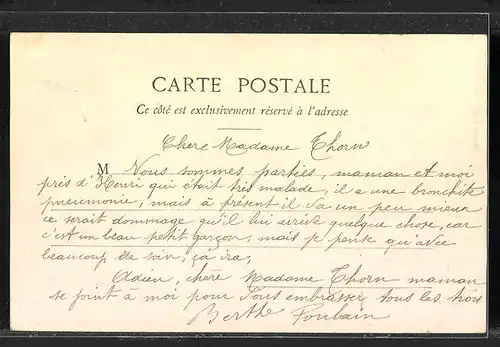 CARTE POSTALE
Ce côté est exclusivement réservé à l'adresse
Chère Madame Thorn
M Nous sommes parties, maman et moi
près d'Henri qui était très malade, il a une bronchite
pneumonie, mais à présent il va un peu mieux
ce serait dommage qu'il lui arrive quelque chose, car
c'est un beau petit garçon, mais je pense qu'avec
beaucoup de soin, ça ira,
Adieu, chère Madame Thorn maman
se joint à moi pour vous embrasser tous les trois
Berthe Poulain